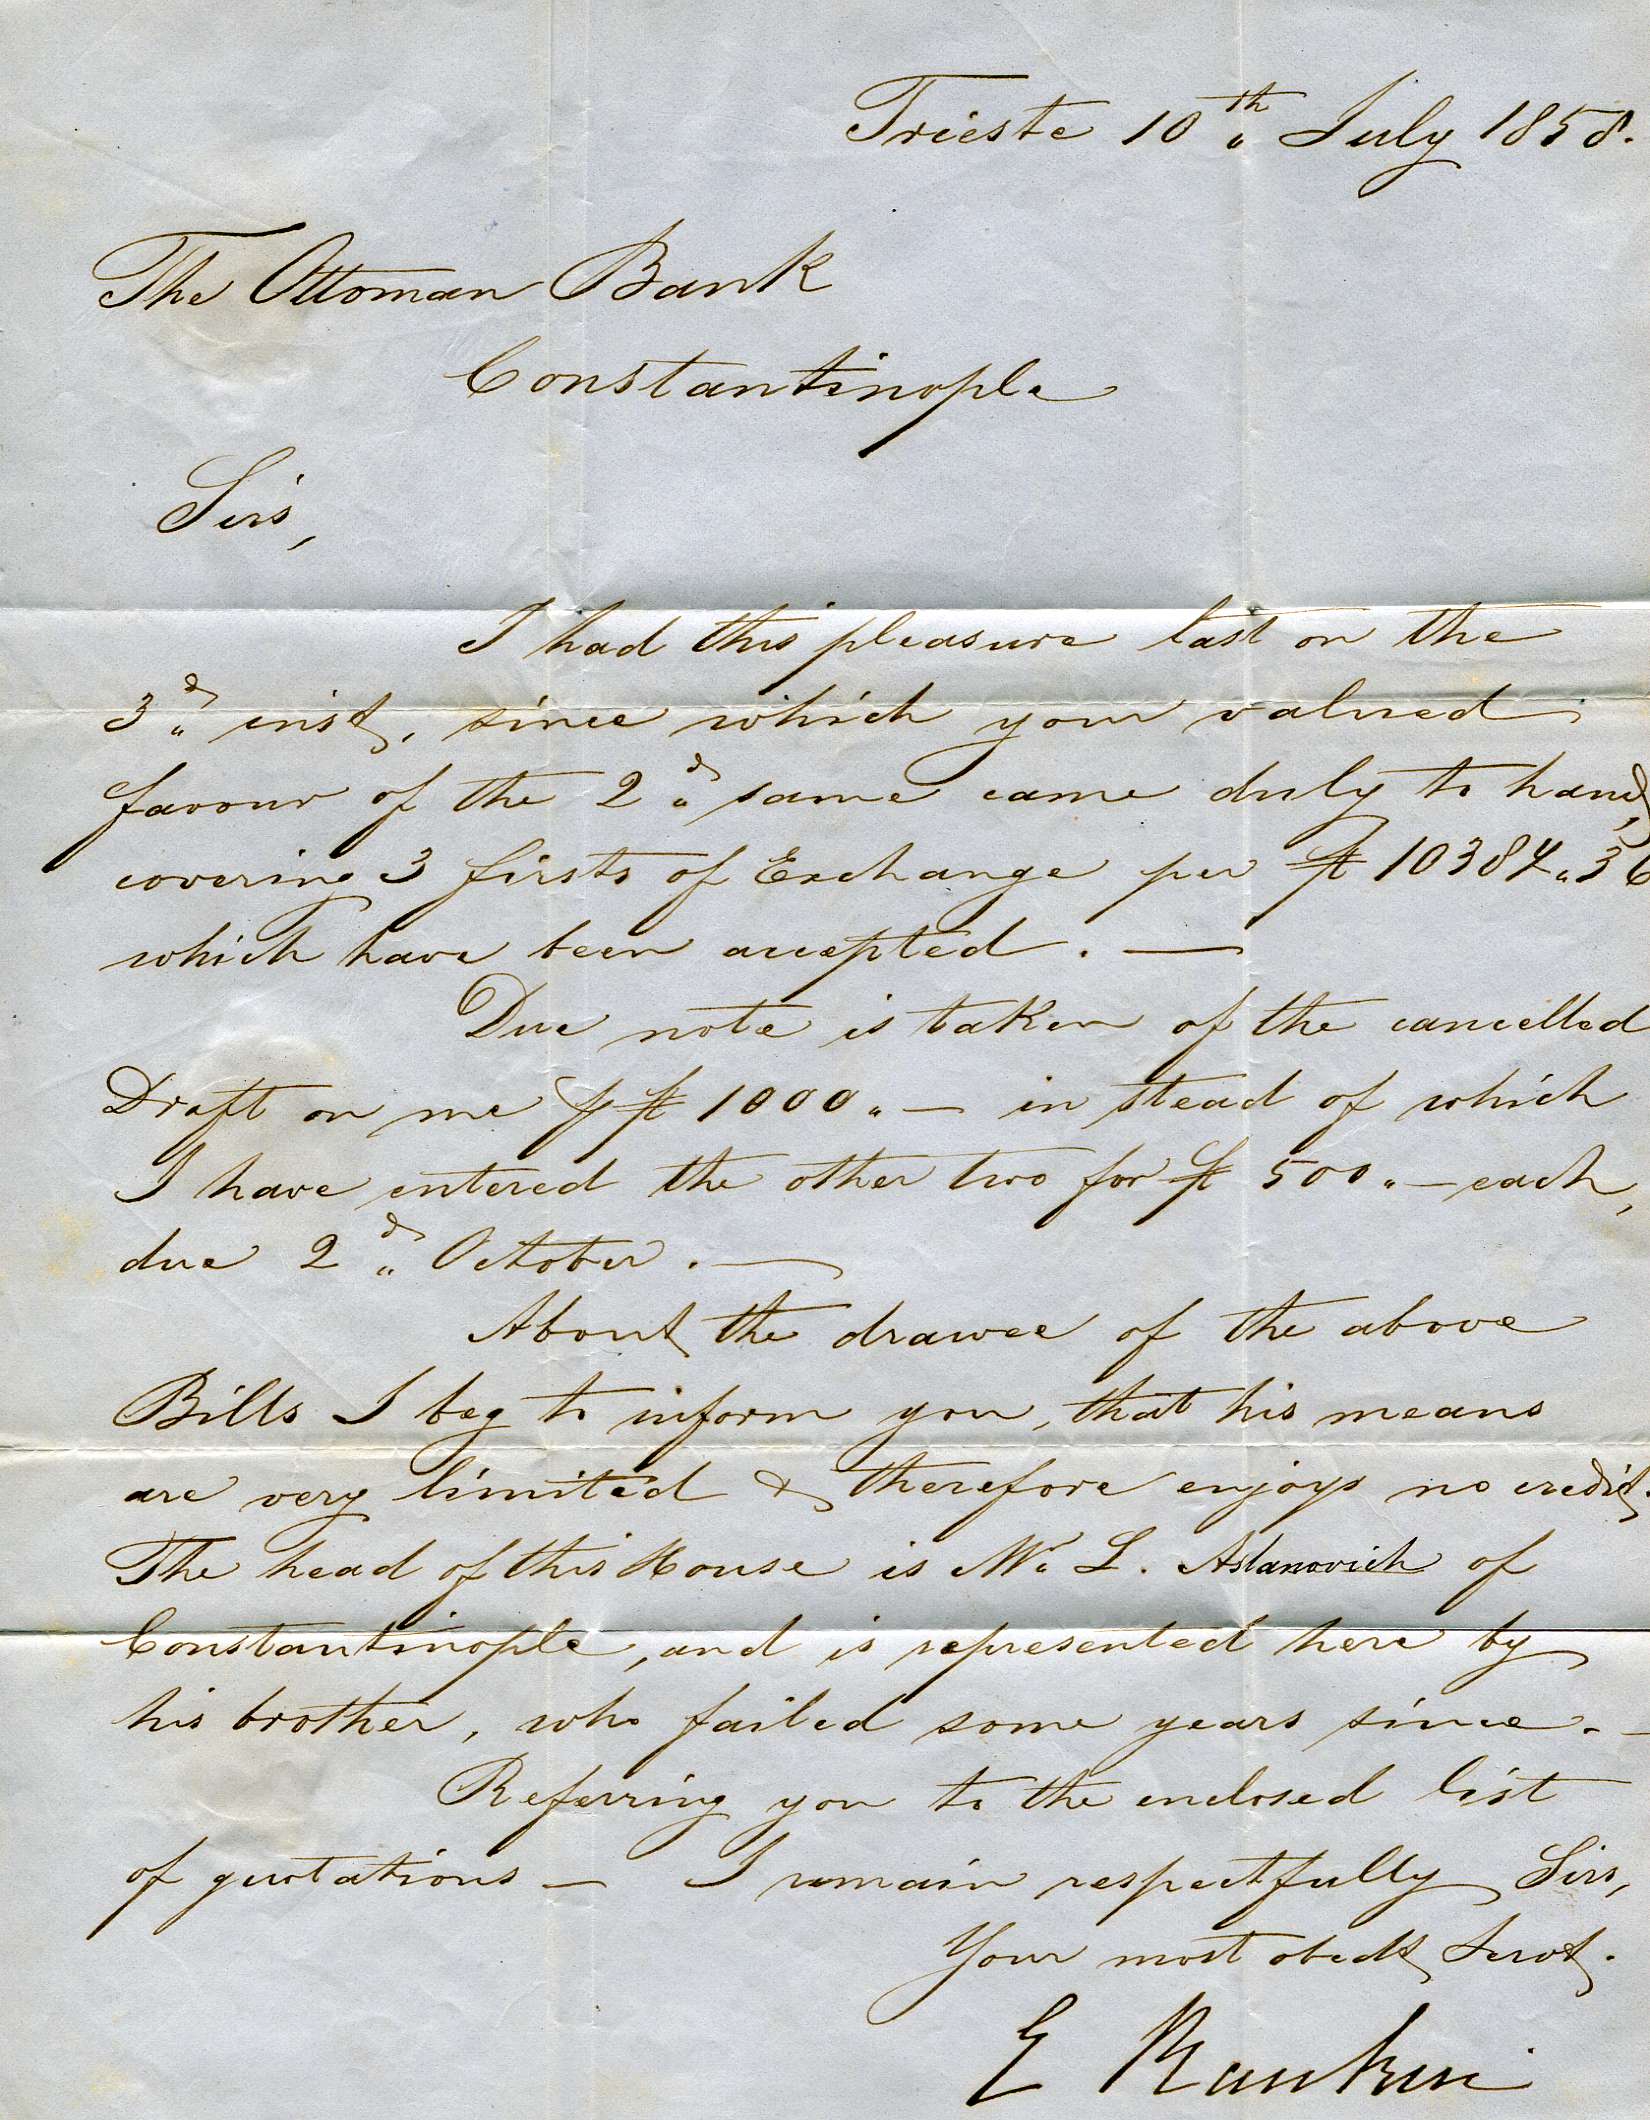 Trieste 10th July 1858.
The Ottoman Bank
Constantinople
Sirs,
I had this pleasure last on the
3d inst, since which your valued
favour of the 2d same came duly to hand,
covering 3 firsts of Exchange per ft 10384.36
which have been accepted. —
Due note is taken of the cancelled
Draft on me ft 1000.— in stead of which
I have entered the other two for ft 500.— each,
due 2d October. —
About the drawee of the above
Bills I beg to inform you, that his means
are very limited & therefore enjoys no credit.
The head of this House is Mr. L. Aslanovich of
Constantinople, and is represented here by
his brother, who failed some years since. —
Referring you to the enclosed list
of quotations — I remain respectfully Sirs,
Your most obedt Servt.
E